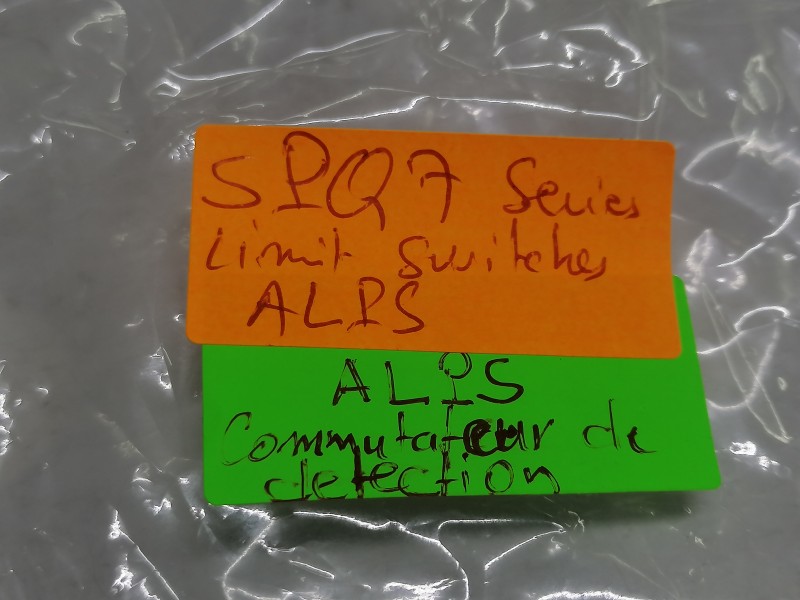 SPQ7 Series
Limit switches
ALPS
ALPS
Commutateur de
detection